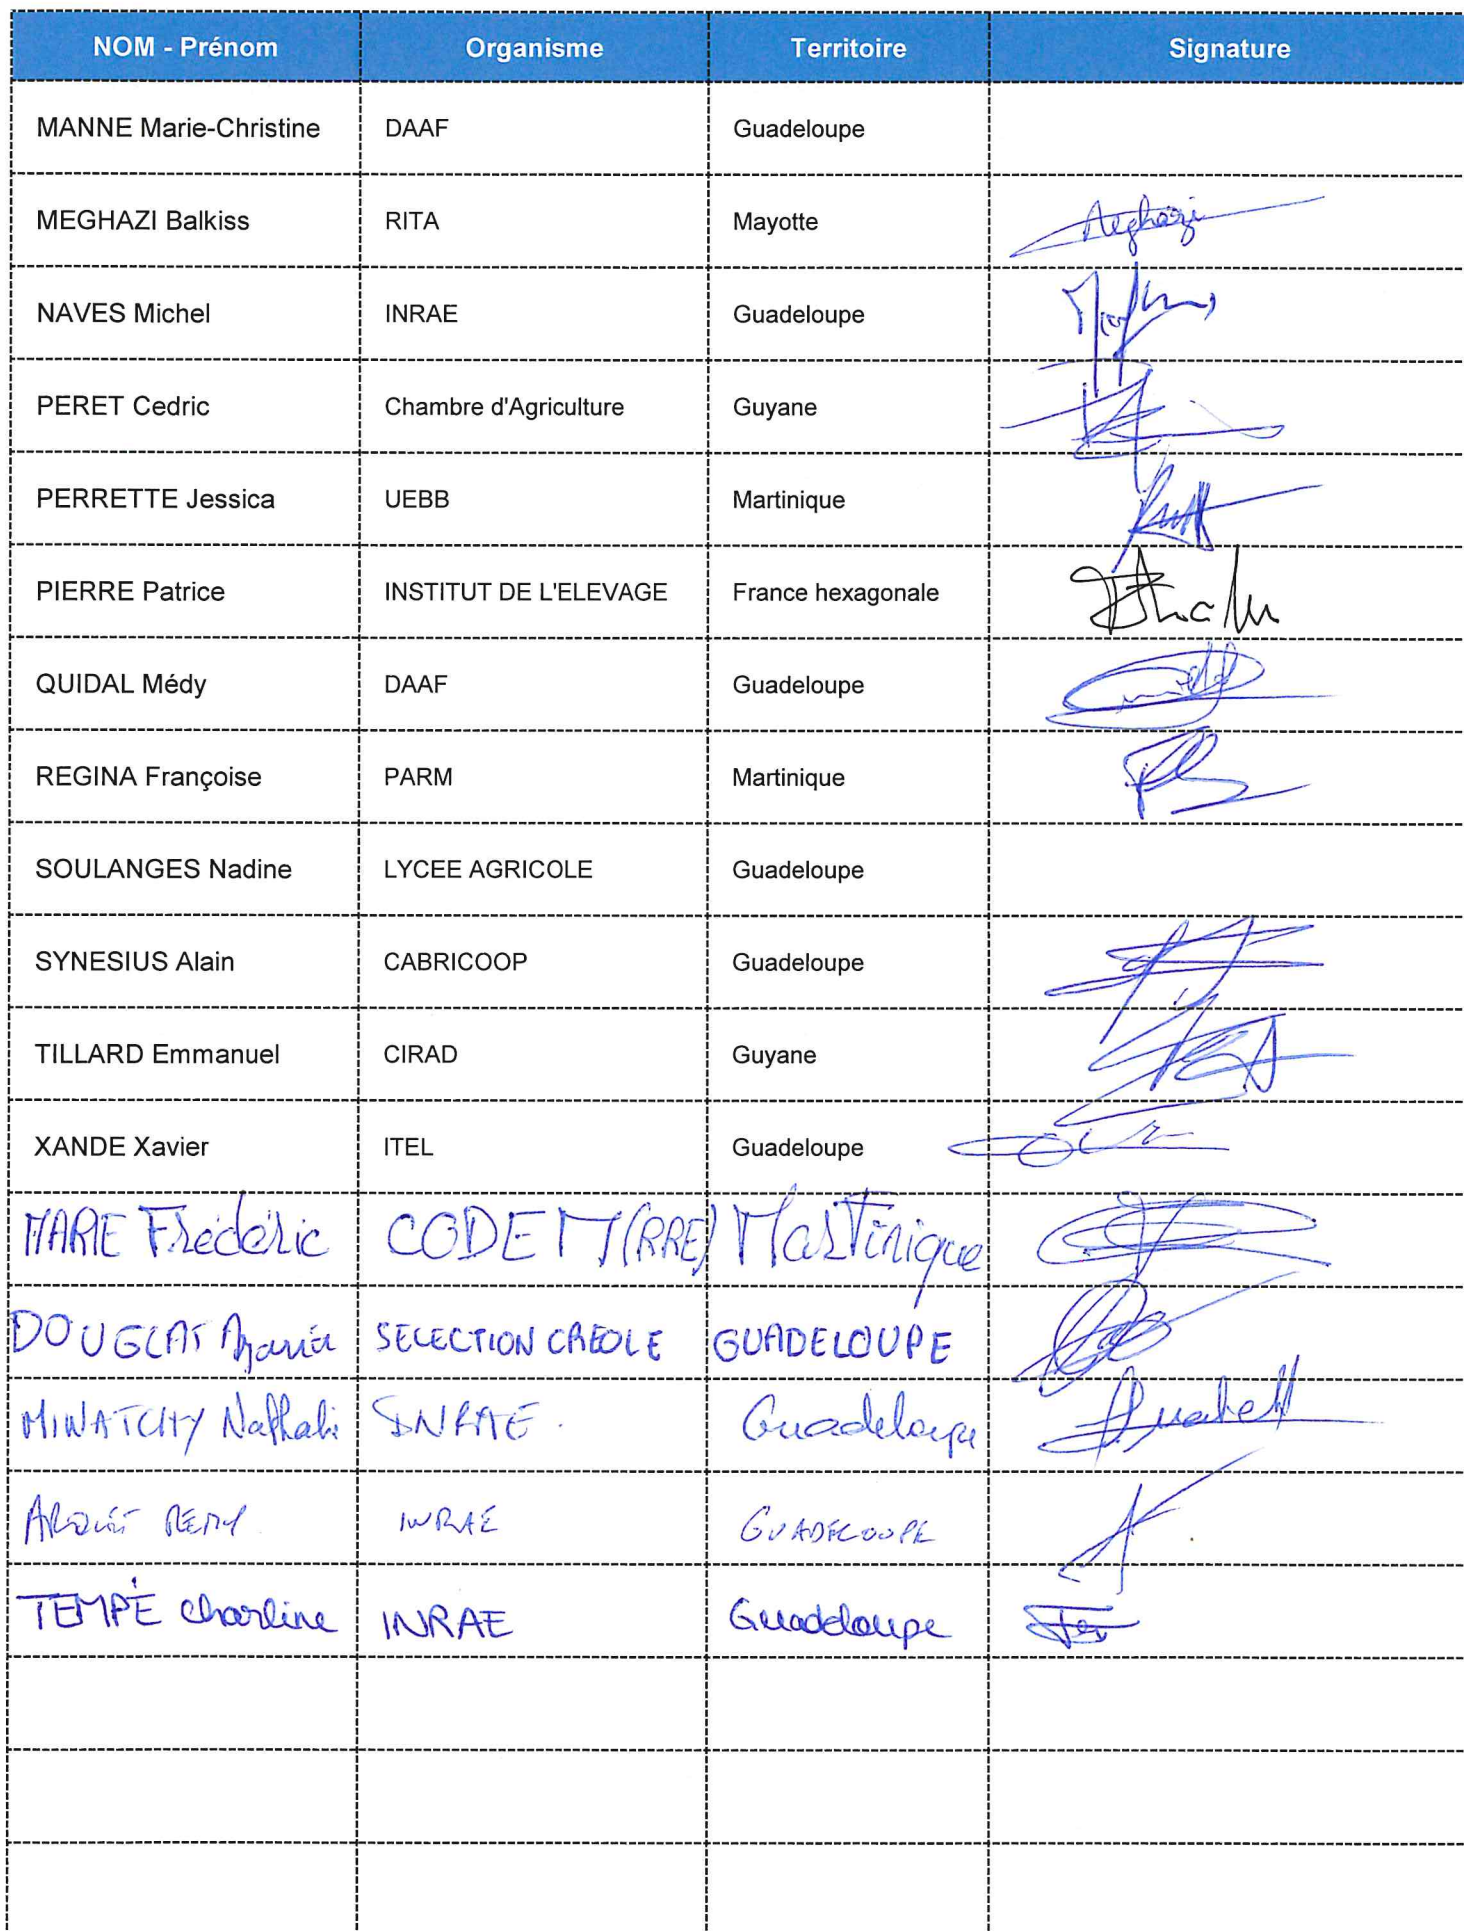 NOM - Prénom Organisme Territoire Signature
MANNE Marie-Christine DAAF Guadeloupe
MEGHAZI Balkiss RITA Mayotte Meghazi
NAVES Michel INRAE Guadeloupe
PERET Cedric Chambre d'Agriculture Guyane
PERRETTE Jessica UEBB Martinique
PIERRE Patrice INSTITUT DE L'ELEVAGE France hexagonale
QUIDAL Médy DAAF Guadeloupe
REGINA Françoise PARM Martinique
SOULANGES Nadine LYCEE AGRICOLE Guadeloupe
SYNESIUS Alain CABRICOOP Guadeloupe
TILLARD Emmanuel CIRAD Guyane
XANDE Xavier ITEL Guadeloupe
MARIE Frédéric CODEM (RRE) Martinique
DOUGLAS SELECTION CREOLE GUADELOUPE
MINATCHY Nathalie INRAE Guadeloupe
REMY INRAE GUADELOUPE
TEMPÉ Charline INRAE Guadeloupe